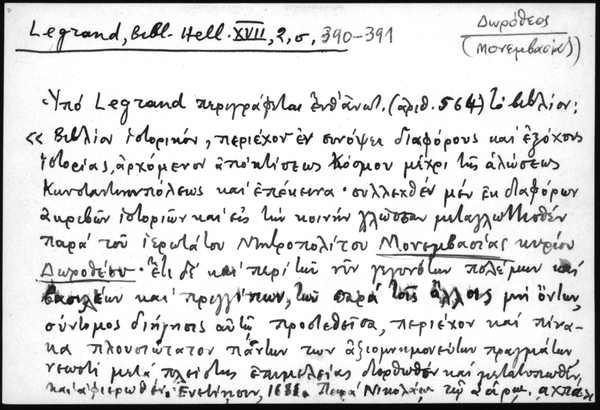 Legrand, Bibl. Hell. XVII, 2, σ. 390-391
Δωρόθεος
(Μονεμβασίας)
Ὑπό Legrand περιγράφεται ἐνθ' ἀνωτ. (ἀριθ. 564) τό βιβλίον:
« Βιβλίον ἱστορικόν, περιέχον ἐν συνόψει διαφόρους καί ἐξόχους
ἱστορίας, ἀρχόμενον ἀπό κτίσεως Κόσμου μέχρι τῆς ἁλώσεως
Κωνσταντινουπόλεως καί ἐπέκεινα. συλλεχθέν μέν ἐκ διαφόρων
ἀκριβῶν ἱστοριῶν καί εἰς τήν κοινήν γλῶσσαν μεταγλωττισθέν
παρά τοῦ ἱερωτάτου Μητροπολίτου Μονεμβασίας κυρίου
Δωροθέου. ἔτι δέ καί περί τῶν νῦν γεγονότων πολέμων καί
βασιλέων καί πριγγίπων, τῶν παρά τοῖς ἄλλοις μή ὄντων,
σύντομος διήγησις αὐτῷ προστεθεῖσα, περιέχον καί πίνα-
κα πλουσιώτατον πάντων τῶν ἀξιομνημονεύτων πραγμάτων
νεωστί μετά πλείστης ἐπιμελείας διορθωθέν καί μετατυπωθέν,
καί ἀφιερωθέν. Ἐνετίησιν, Παρά Νικολάῳ τῷ Σάρῳ.